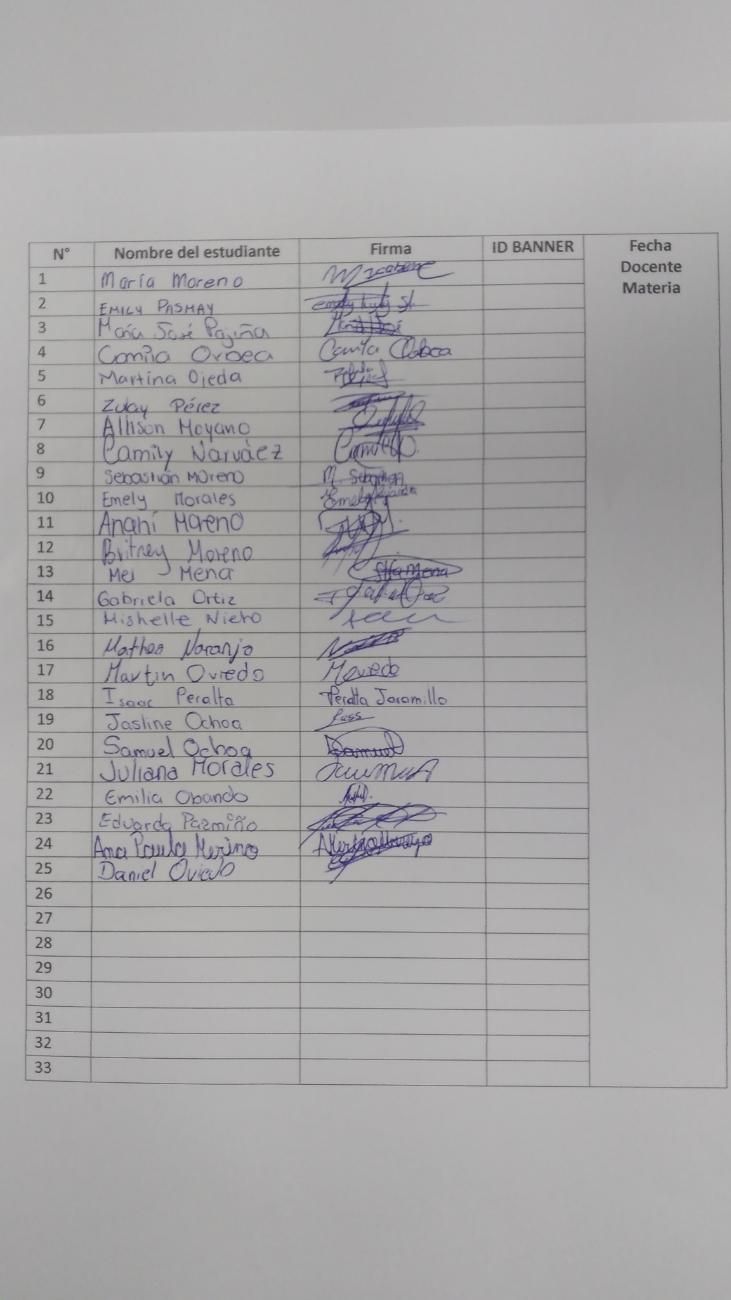 N° Nombre del estudiante Firma ID BANNER Fecha
Docente
Materia
1 María Moreno
2 EMILY PASMAY
3 María José
4 Camila Camila
5 Martina Ojeda
6 Zulay Pérez
7 Allison Moyano
8 Camily Narváez
9 Sebastián Moreno M. Sebastian
10 Emely Morales Emely
11 Anahí Moreno
12 Britney Moreno
13 Mei Mena
14 Gabriela Ortiz
15 Mishelle Nieto
16 Matheo Naranjo
17 Martin Oviedo
18 Isaac Peralta Peralta Jaramillo
19 Jasline Ochoa
20 Samuel Ochoa Samuel
21 Juliana Morales
22 Emilia Obando
23 Eduarda Pazmiño
24 Ana Paula Merino
25 Daniel Oviedo
26
27
28
29
30
31
32
33